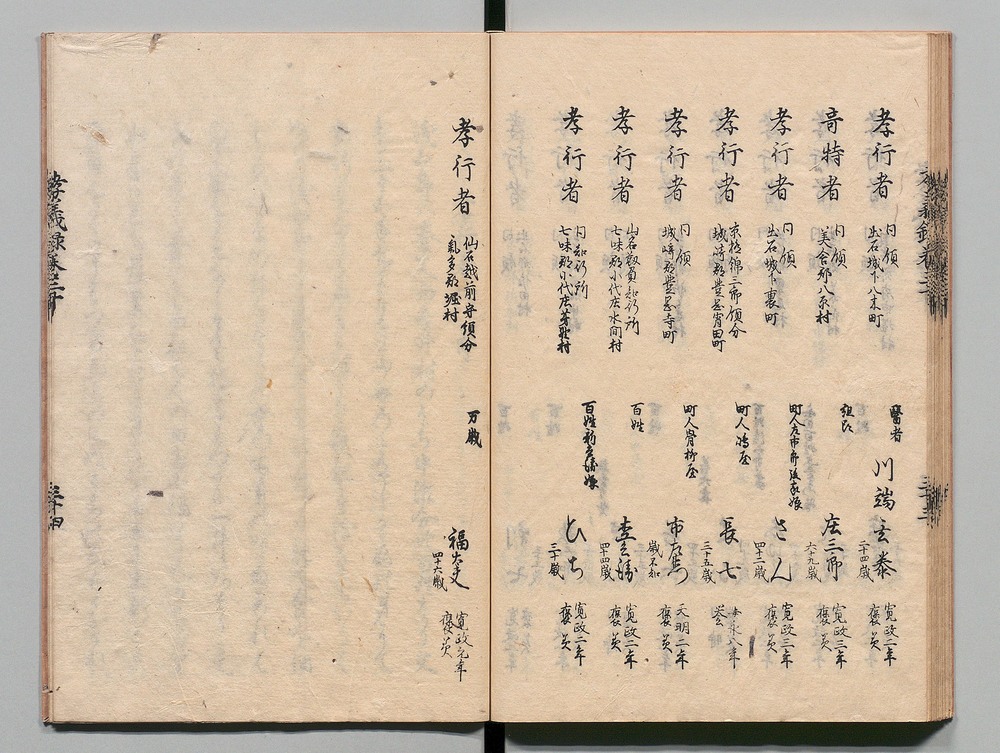 孝行者
同領
出石城下八木町
醫者
川端玄泰
二十四歳
寛政二年
褒美
奇特者
同領
美含郡八原村
組頭
庄三郎
六十九歳
寛政三年
褒美
孝行者
同領
出石城下裏町
町人
後家娘
さん
四十二歳
寛政三年
褒美
孝行者
京極
領分
城崎郡豊岡宵田町
町人
長七
三十五歳
孝行者
同領
城崎郡豊岡寺町
町人
市左衛門
歳不知
天明二年
褒美
孝行者
知行所
七味郡小代庄水間村
百姓
四十四歳
寛政二年
褒美
孝行者
同知行所
七味郡小代庄
百姓
娘
ひち
三十歳
寛政二年
褒美
孝行者
仙石越前守領分
氣多郡
村
万歳
福大夫
四十六歳
寛政元年
褒美
孝義録巻三十
三十四